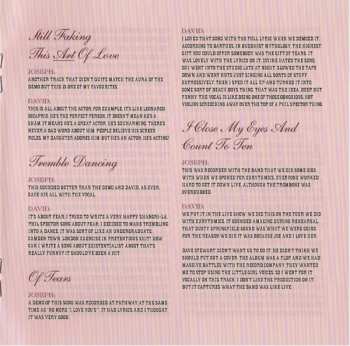 Still Faking
This Art Of Love
JOSEPH:
ANOTHER TRACK THAT DIDN'T QUITE MATCH THE AURA OF THE
DEMO BUT THIS IS ONE OF MY FAVOURITES.
DAVID:
THIS IS ALL ABOUT THE ACTOR. FOR EXAMPLE, IT'S LIKE LEONARDO
DICAPRIO. HE'S THE PERFECT PERSON. IT DOESN'T MEAN HE'S A
SHAM. IT MEANS HE'S A GREAT ACTOR. HE'S SO CHARMING. THERE'S
NEVER A BAD WORD ABOUT HIM. PEOPLE BELIEVE HIS SCREEN
ROLES. MY DAUGHTER ADORES HIM. BUT HE'S AN ACTOR. HE'S ACTING!
Tremble Dancing
JOSEPH:
THIS SOUNDED BETTER THAN THE DEMO AND DAVID, AS EVER,
GAVE HIS ALL WITH THE VOCAL.
DAVID:
IT'S ABOUT FEAR. I TRIED TO WRITE A VERY HAPPY SHANGRI-LA,
PHIL SPECTOR SONG ABOUT FEAR. I DECIDED TO MAKE TREMBLING
INTO A DANCE. IT WAS SORT OF LIKE AN UNDERGRADUATE,
CAMDEN TOWN, LONDON EXERCISE IN PRETENTIOUS SHIT! HOW
CAN I WRITE A SONG ABOUT EXISTENTIALIST ANGST THAT'S
REALLY FUNNY? IT SHOULD'VE BEEN A HIT.
Of Tears
JOSEPH:
A DEMO OF THIS SONG WAS RECORDED AT PATHWAY AT THE SAME
TIME AS 'NO MORE "I LOVE YOU'S"'. IT HAD LYRICS AND I THOUGHT
IT WAS VERY GOOD.
DAVID:
I LOVED THAT SONG WITH THE FULL LYRIC WHEN WE DEMOED IT.
ACCORDING TO BARTHES, IN BUDDHIST MYTHOLOGY, THE HIGHEST
GIFT YOU COULD OFFER SOMEBODY WAS THE GIFT OF TEARS. IT
WAS LOVELY WITH THE LYRICS ON IT. DIVING HATED THE SONG.
SO I WENT INTO THE STUDIO LATE AT NIGHT, SLOWED THE TAPE
DOWN AND WENT NUTS JUST SINGING ALL SORTS OF STUFF
EXPRESSIVELY. THEN I SPED IT ALL UP AND TURNED IT INTO
SOME SORT OF BEACH BOYS THING. THAT WAS THE IDEA. DEEP DOWN
I WANT THE VOCAL LINES BEING ONE OF THOSE GORGEOUS, HOT
VIOLINS SCREECHING AWAY OVER THE TOP OF A PHIL SPECTOR THING.
I Close My Eyes And
Count To Ten
JOSEPH:
THIS WAS RECORDED WITH THE BAND THAT WE DID SOME GIGS
WITH WHEN WE OPENED FOR EURYTHMICS. EVERYONE WORKED
HARD TO GET IT DOWN LIVE. ALTHOUGH THE TROMBONE WAS
OVERDUBBED.
DAVID:
WE PUT IT IN THE LIVE SHOW. WE DID THIS ON THE TOUR WE DID
WITH EURYTHMICS. IT SOUNDED AMAZING DURING REHEARSAL.
THAT DUSTY SPRINGFIELD SOUND WAS WHAT WE WERE GOING
FOR. THE REASON WE DID IT WAS BECAUSE JOE AND I LOVE HER.
DAVE STEWART DIDN'T WANT US TO DO IT. HE DIDN'T THINK WE
SHOULD PUT OUT A COVER. THE ALBUM WAS A FLOP AND WE HAD
MASSIVE BATTLES WITH THE RECORD COMPANY. THEY WANTED
ME TO STOP USING THE LITTLE GIRL VOICES. SO I WENT FOR IT
VOCALLY ON THIS TRACK. I DON'T LIKE THE PRODUCTION ON IT,
BUT IT CAPTURES WHAT THE BAND WAS LIKE LIVE.